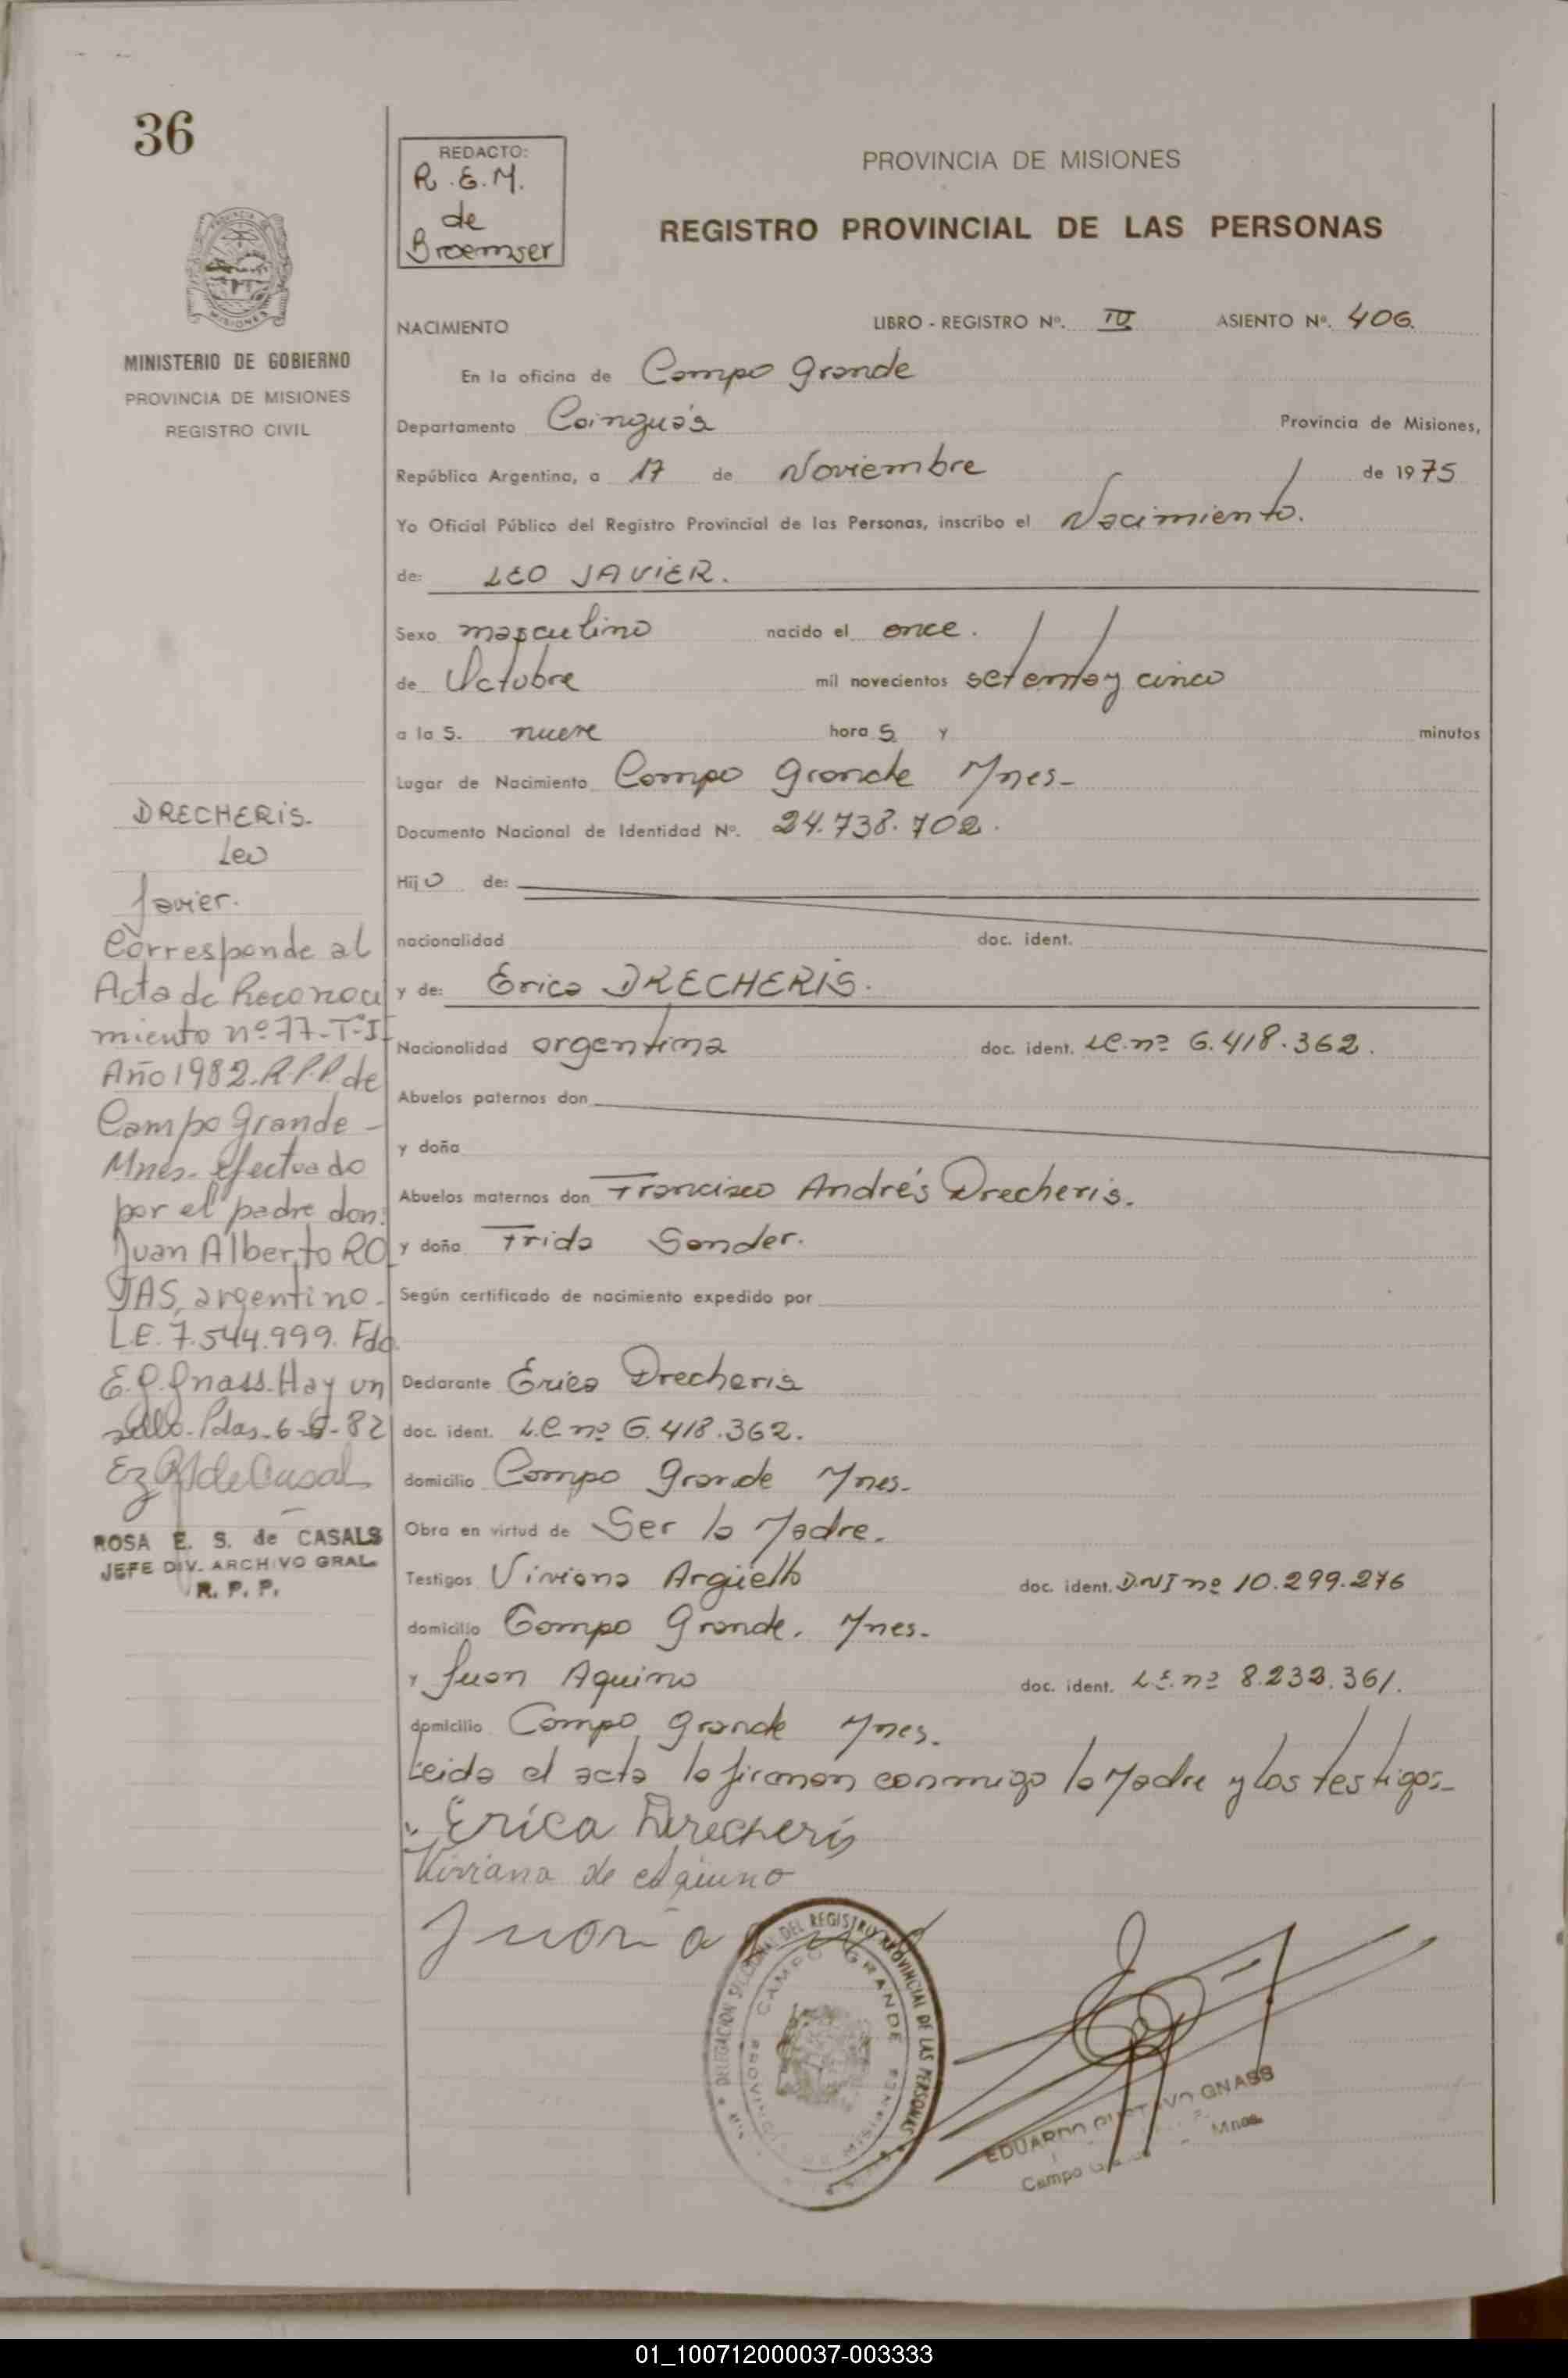 36
REDACTO:
R.E.M.
de
Broemser
PROVINCIA DE MISIONES
REGISTRO PROVINCIAL DE LAS PERSONAS
MINISTERIO DE GOBIERNO
PROVINCIA DE MISIONES
REGISTRO CIVIL
NACIMIENTO LIBRO - REGISTRO Nº. ASIENTO Nº. 406.
En la oficina de Campo Grande
Departamento Cainguás Provincia de Misiones,
República Argentina, a 17 de Noviembre de 1975
Yo Oficial Público del Registro Provincial de las Personas, inscribo el Nacimiento.
de: LEO JAVIER.
Sexo masculino nacido el once.
de Octubre mil novecientos setenta y cinco
a la s. nueve hora s y minutos
Lugar de Nacimiento Campo Grande Mnes-
Documento Nacional de Identidad Nº. 24.738.702.
Hij o de:
nacionalidad doc. ident.
y de: Erica DRECHERIS.
Nacionalidad argentina doc. ident. LC. nº 6.418.362.
Abuelos paternos don
y doña
Abuelos maternos don Francisco Andrés Drecheris.
y doña Frida Sander.
Según certificado de nacimiento expedido por
Declarante Erica Drecheris
doc. ident. L.C nº 6.418.362.
domicilio Campo Grande Mnes.
Obra en virtud de Ser la Madre.
Testigos Viviana Argüello doc. ident. D.N.I nº 10.299.276
domicilio Campo Grande. Mnes.
y Juan Aquino doc. ident. L.E. nº 8.232.361.
domicilio Campo Grande Mnes.
Leida el acta la firman conmigo la Madre y los testigos-
Erica Drecheris
Viviana de Aquino
Juan
DRECHERIS-
Leo
Javier.
Corresponde al
Acta de Reconoci
miento nº 77-T-I
Año 1982. R.P.P. de
Campo Grande -
Mnes. efectuado
por el padre don:
Juan Alberto RO
JAS, argentino.
L.E. 7.544.999. Fdo.
E.G. Gnass. Hay un
sello. Pdas. 6-6-82
de Casals
ROSA E. S. de CASALS
JEFE DIV. ARCHIVO GRAL.
R. P. P.
DELEGACION SECCIONAL DEL REGISTRO PROVINCIAL DE LAS PERSONAS
CAMPO GRANDE
EDUARDO GUSTAVO GNASS
Campo Mnes.
01_100712000037-003333